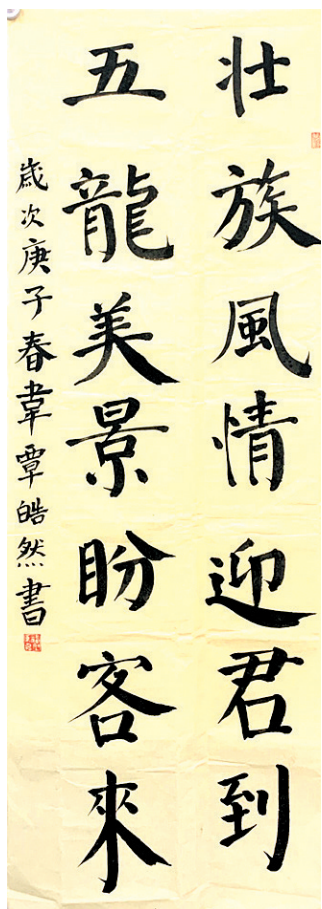 壯族風情迎君到
五龍美景盼客來
歲次庚子春韋覃皓然書